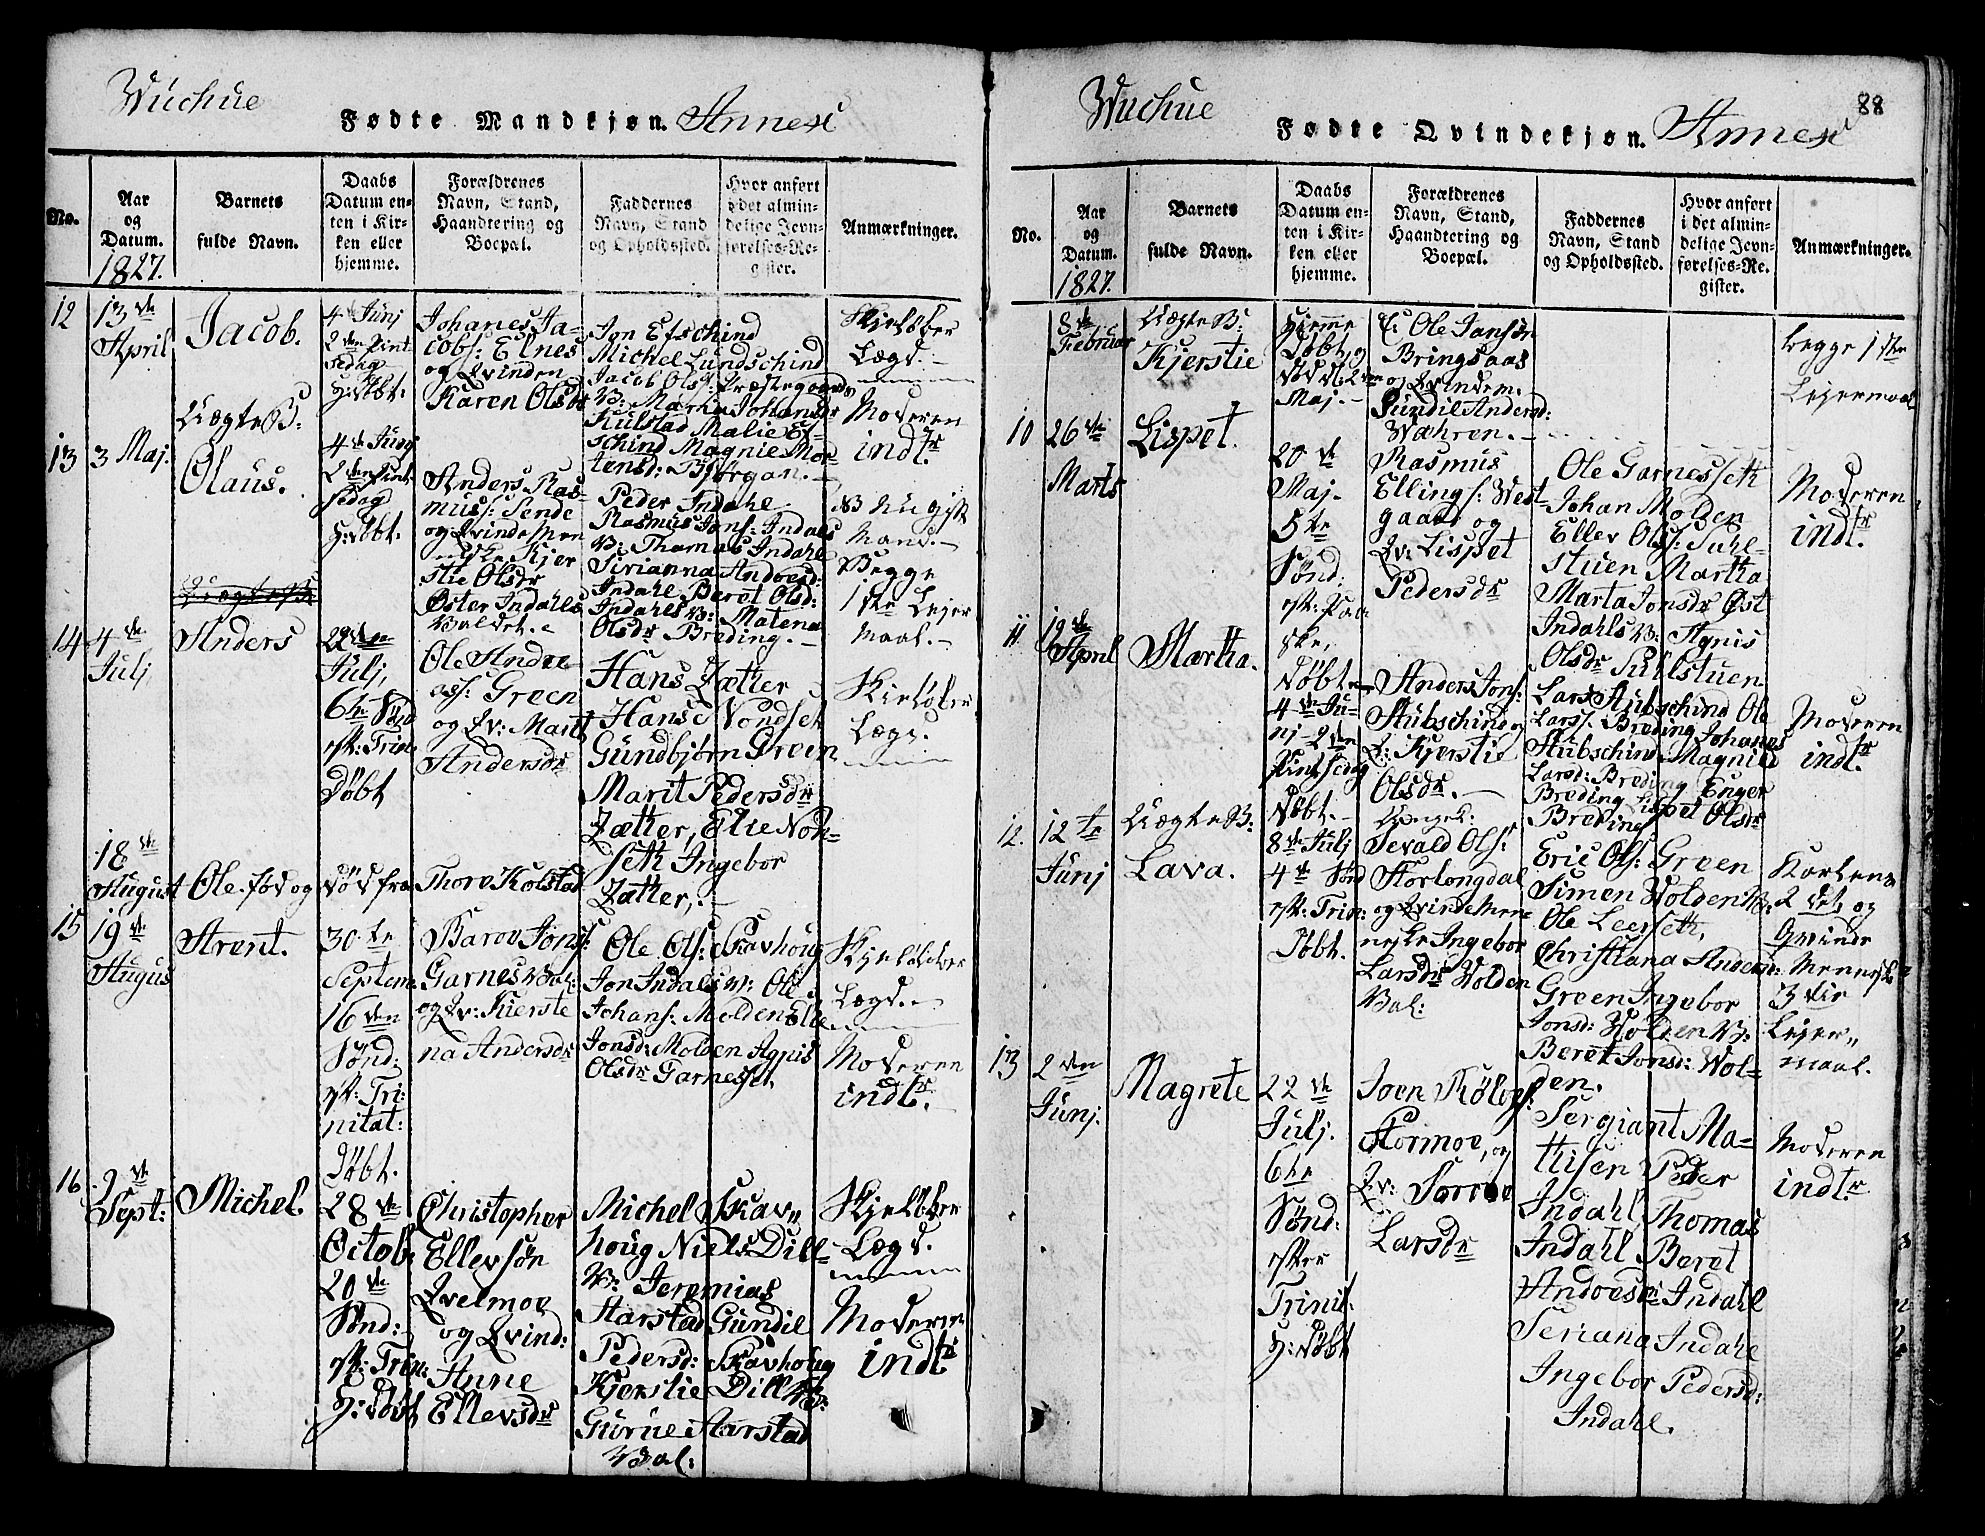 Wuchue
Fødte Mandkjøn. Annex
No.
Aar
og
Datum.
1827.
Barnets
fulde Navn.
Daabs
Datum en-
ten i Kir-
ken eller
hjemme.
Forældrenes
Navn, Stand,
Haandtering og
Boepæl.
Faddernes
Navn, Stand
og Opholdssted.
Hvor anført
i det almin-
delige Jevn-
førelses-Re-
gister.
Anmærkninger.
12
13de
April
Jacob.
4de Junj
2den Pint
sedag
H: Døbt:
Johanes Ja-
cobs: Elnes
og Qvinden
Karen Olsdr
Jon Efschind
Michel Lundschind
Jacob Ols:
Kulstad Malie Ef-
schind Magnie Mor-
tensd: Bjørgan.
Skieløber
Lægd.
Moderen
indtr.
13
3 Maj.
Uægte B:
Olaus.
4de Junj
2den Pint
sedag
H: Døbt.
Anders Ras-
muss: Sende
og Qvindemen
neske Kjer
stie Olsdr
Øster Indahls
Valdet.
Peder Indahl
Rasmus Jons: Indals
V: Thomas Indahl
Sirianna Andersd:
Indahl Beret Olsd:
Indahls V: Matena
Olsdr Breding.
Nu gift
Mand.
Begge
1ste Lejer
Maal.
14
4de
Julj
Anders
22de
Julj,
6te Sønd
eft: Trin:
Døbt
Ole Andre
as: Green
og Qv: Marit
Andersdr
Hans Zætter
Hans Vondset
Gundbjørn Green
Marit Pedersdr
Zætter, Elie Von-
seth Ingebor
Zætter,
Skieløber
Lægd.
18de
August
Ole. fød og
død fra
Thore Kolstad
15
19de
Augus
Arent.
30te
Septem
16den
Sønd:
eft: Tri:
nitat:
Døbt.
Baroe Jons:
Garnes Val:
og Qv: Kierste
na Andersdr
Ole Ols: Skavhoug
Jon Indals V: Ole
Johans: Molden Elie
Jonsd: Molden Agnis
Olsdr Garnesset
Skieløber
Lægd.
Moderen
indtr.
16
2de
Sept:
Michel.
28de
Octob:
20de
Sønd:
eft: Trin:
H: Døbt
Christopher
Ellevsön
Qvelmoe
og Qvind:
Anne
Ellevsdr
Michel Skav
houg Niels Dill-
V: Jeremias
Aarstad Gundil
Pedersd: Skavhoug
Kjerstie Dill
Gurue Aarstad
Val:
Skjeløber
Lægd.
Moderen
indtr
Wuchue
Fødte Qvindekjøn. Annex
88
No.
Aar
og
Datum.
1827.
Barnets
fulde Navn.
Daabs
Datum en-
ten i Kir-
ken eller
hjemme.
Forældrenes
Navn, Stand,
Haandtering og
Boepæl.
Faddernes
Navn, Stand
og Opholdssted.
Hvor anført
i det almin-
delige Jevn-
førelses-Re-
gister.
Anmærkninger.
8de
Februar
Uægte B:
Kjerstie
Hjemme
Døbt, og
død d: 2den
Maj.
E: Ole Jansön
Bringsaas
og Qvindem.
Gundil Andersd:
Wæhren.
begge 1ste
Lejermaal
10
26de
Marts
Lispet.
20de
Maj.
5te
Sønd:
eft: Paa
ske,
Døbt
Rasmus
Ellings: West-
gaard og
Qv: Lispet
Pedersdr
Ole Garnesseth
Johan Molden
Ellev Ols: Suhl-
stuen Martha
Marta Jonsdr Øst
Indahls V: Agnis
Olsdr Sullstuen
Moderen
indtr.
11
19de
April
Martha.
4de Ju-
nj 2den
Pintsedag
Døbt.
Anders Jons:
Stubschind og
Q: Kjerstie
Olsdr.
Lars Stubschind Ole
Larss: Breding Johanes
Stubschind Magnild
Larsd: Breding Enger
Breding Lispet Olsdr
Breding
Moderen
indtr.
12.
12te
Junj
Uægte B:
Lava.
8de Julj
4de Sønd
eft: Trin:
Døbt.
Ungk:
Sevald Ols:
Storlongdal
og Qvindemen
neske Ingebor
Larsdr Wolden
Val:
Eric Ols: Green
Simen Wolden
Ole Leerseth,
Christiana Andersd:
Green Ingebor
Jonsd: Wolden V:
Beret Jonsd: Wol-
den.
Karlens
2det og
Qvinde
Menneske
3die
Lejer
maal.
13
2den
Junj.
Magrete
22de
Julj.
6te
Sønd:
efter
Trinit:
H: Døbt
Joen Kølvs:
Stormoe, og
Qv:
Larsdr
Sergiant Ma-
thisen Peder
Indahl Thomas
Indahl Beret
Andoesdr Indahl
Seriana Indahl
Ingebor Pedersd:
Indahl.
Moderen
indtr.